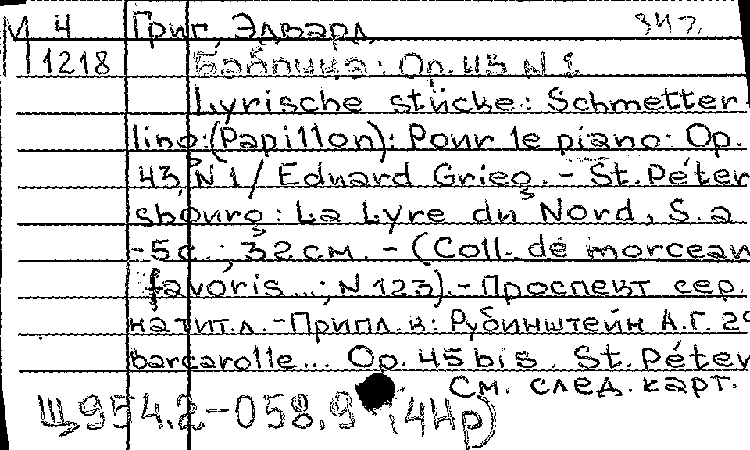 М 4 Григ, Эдвард 347.
1218 Бабочка: Op. 43 N 1
Lyrische stücke: Schmetter
ling:(Papillon): Pour le piano: Op.
43, N 1/ Edward Grieg. - St. Péter
sbourg: La Lyre du Nord, S. a
-5 с.; 32 см. - (Coll. de morceau
favoris...; N 123).-Проспект сер.
на тит.л.-Припл.к: Рубинштейн А.Г. 2
barcarolle... Op. 45 bis. St. Péter
См. след. карт.
Щ954.2-058.9 (4Нр)